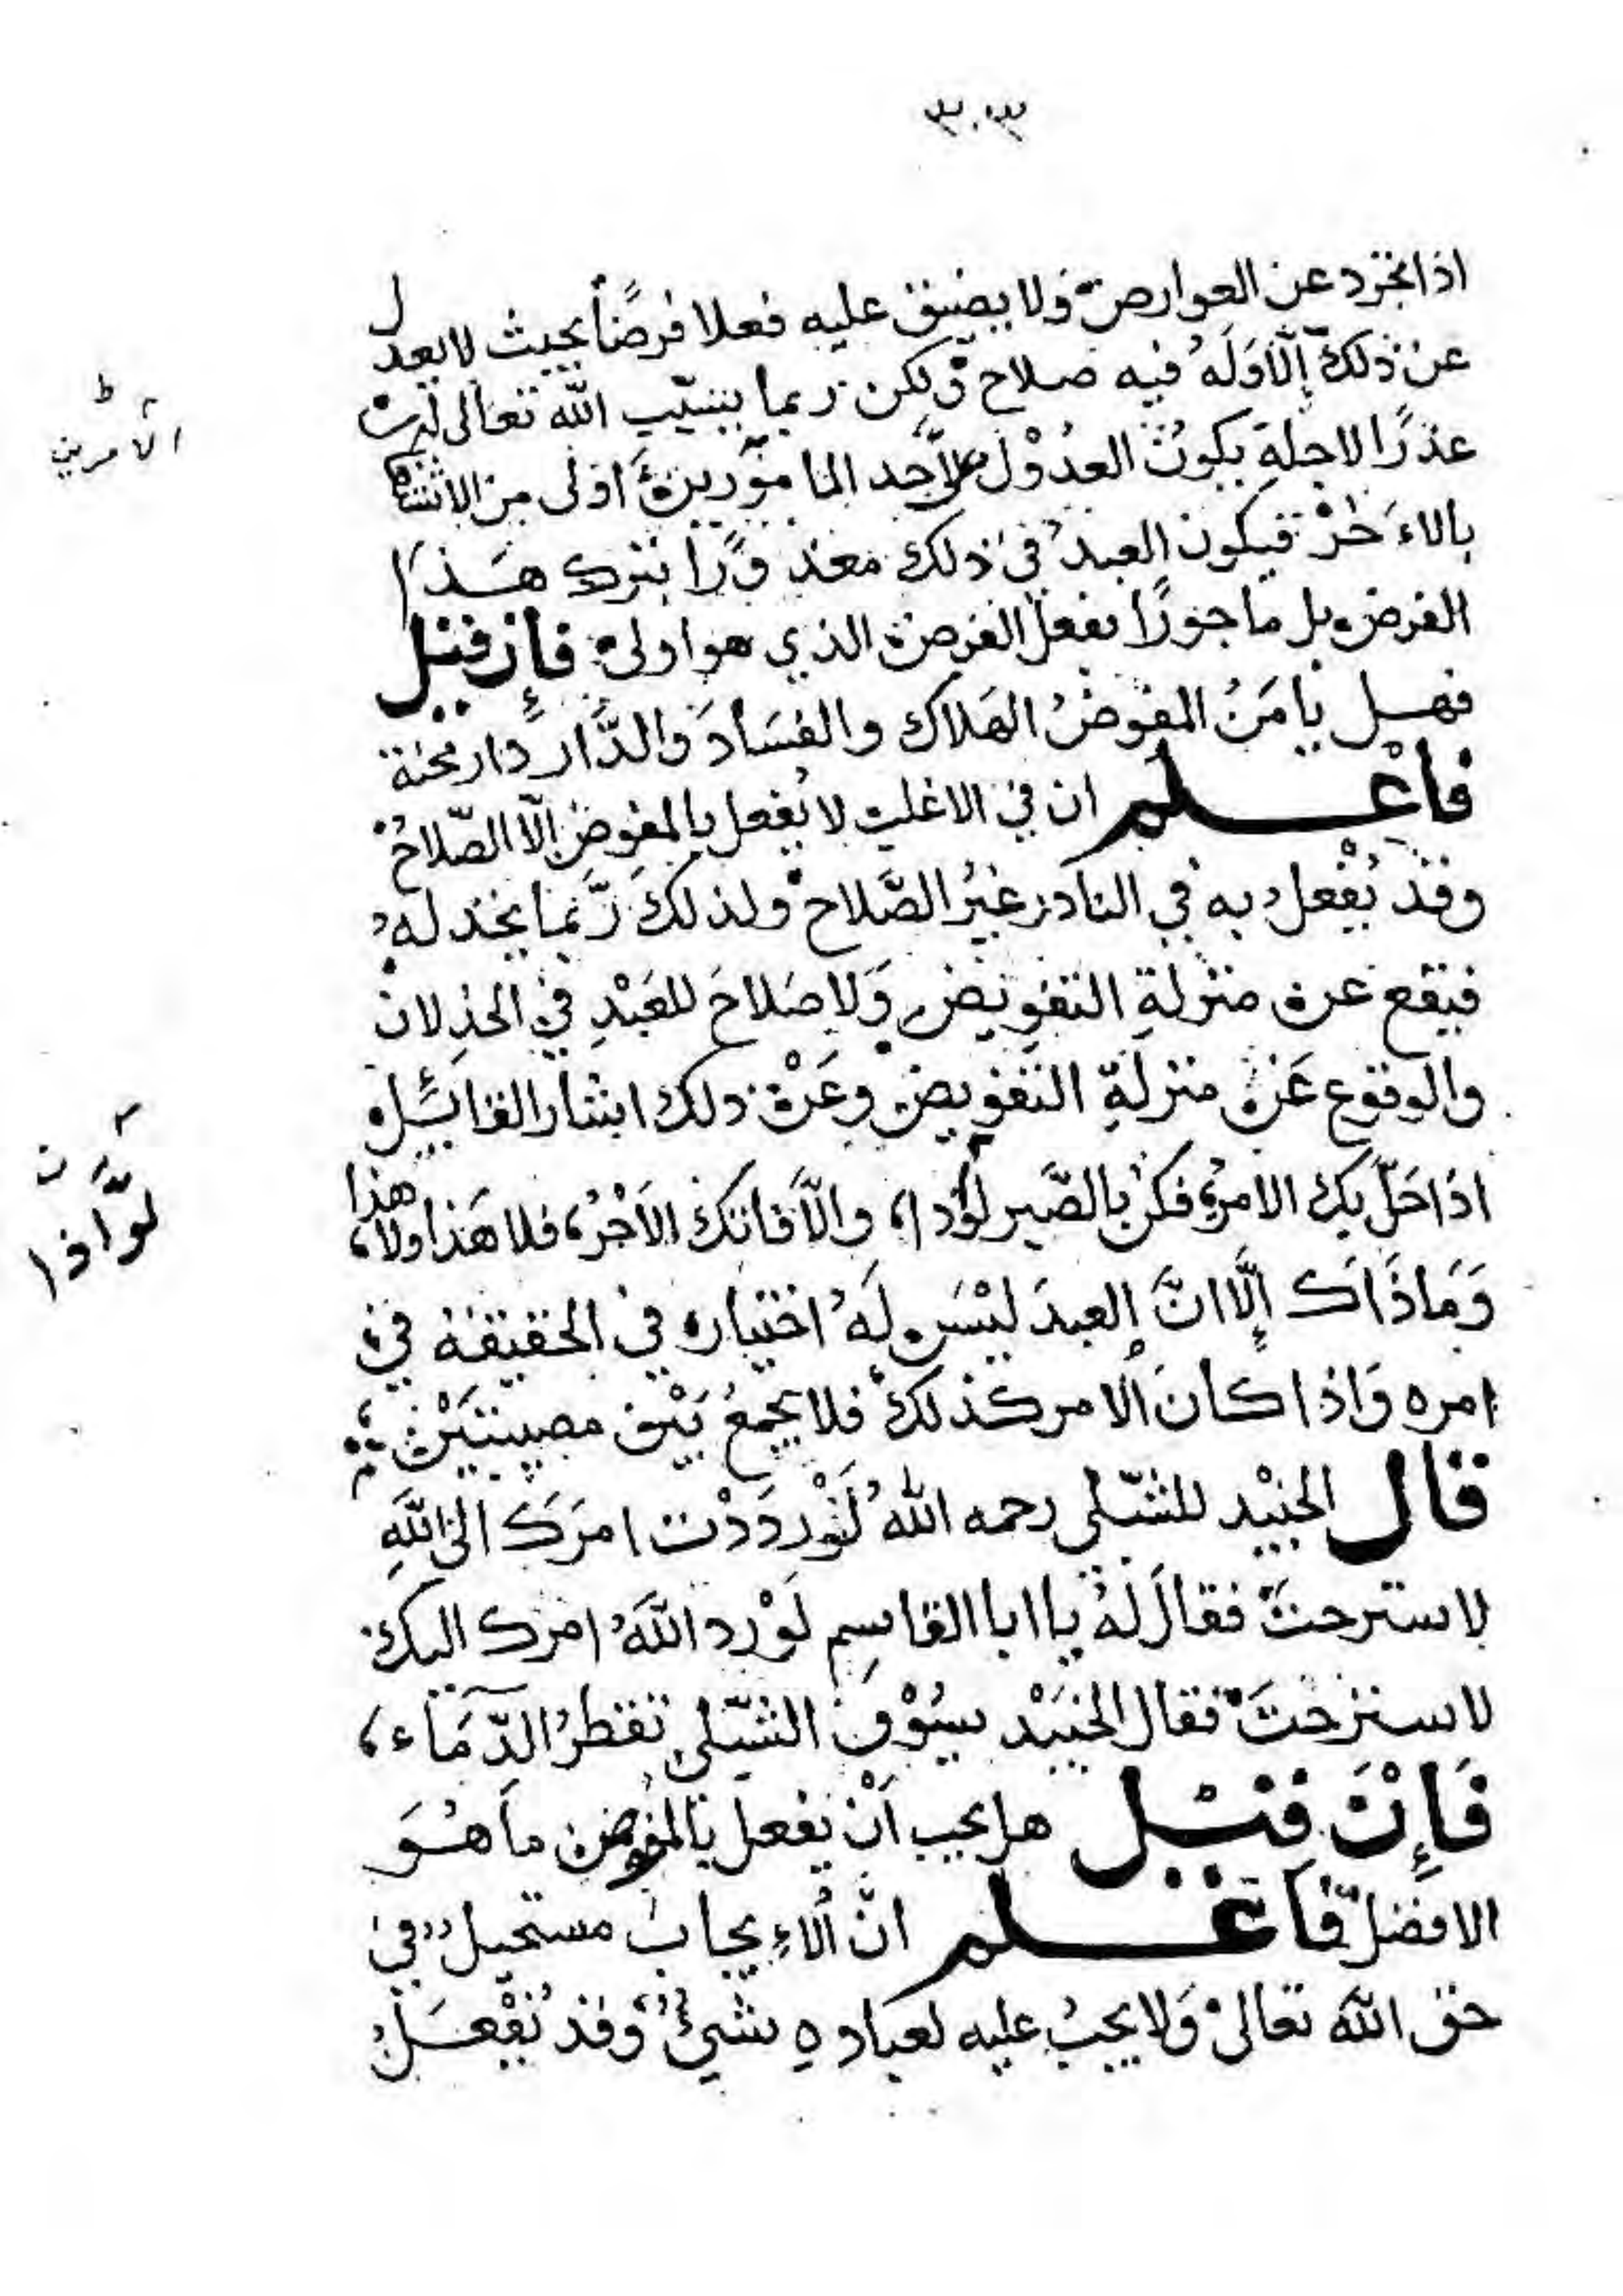 ٣٠٣
اذا تجرد عن العوارض ولا يضيق عليه فعلا فرضًا بحيث لا يعدل
عن ذلك إلّا وَلَهُ فيه صلاح ولكن ربما يسبّب الله تعالى له
عذرًا لاجله يكونُ العدُوْل لاَحد المامورين اولى من الاشتغال
بالاءَخرْ فيكون العبدُ في ذلك معذورًا بترك هذا
الفرض بل ماجورًا بفعل الفرض الذي هو اولى فإن قيل
فهل يامَنُ المفوضُ الهلاك والفسَادَ والدَّار دار محنة
فاعْلم ان في الاغلب لا يُفعل بالمفوض إلّا الصّلاحُ
وقد يُفْعل به في النادر غيرُ الصَّلاح ولذلكَ ربَّما يخذله
فيقع عن منزلةِ التفويض وَلا صَلاحَ للعَبْدِ في الخذلان
والوقوع عَن منزلةِ التفويض وعَنْ ذلك اشار القائل
اذا حَلَّ بك الامرُ فكن بالصَّبر لوَّاذا، والّا فاتكَ الاَجْرُ، فلا هَذا ولا هذا
وَمَا ذَاك إلّا انَّ العبدَ ليْسَ لَهُ اختيار في الحقيقة في
امره وَاذا كانَ الامر كذلك فلا يجمعُ بَيْن مصيبتَيْن
قال الجنيْد للشّبلي رحمه اللهُ لَوْ ردَدْت امرَكَ الى اللهِ
لاسترحتَ فقالَ لهُ يا ابا القاسِم لَوْ رد اللهُ امرك اليك
لاسترحتَ فقال الجنَيْد سيُوْف الشّبلي تقطرُ الدّمَاء،
فَإِنْ قيْل هل يجب اَنْ يفعل بالمفوض ما هُوَ
الافضل فاعْلم انَّ الاءِيجابَ مستحيل في
حق الله تعالىْ وَلا يجبُ عليه لعباده شيءٌ وَقد يُفْعَلُ
الأمرين
لَوَّاذا